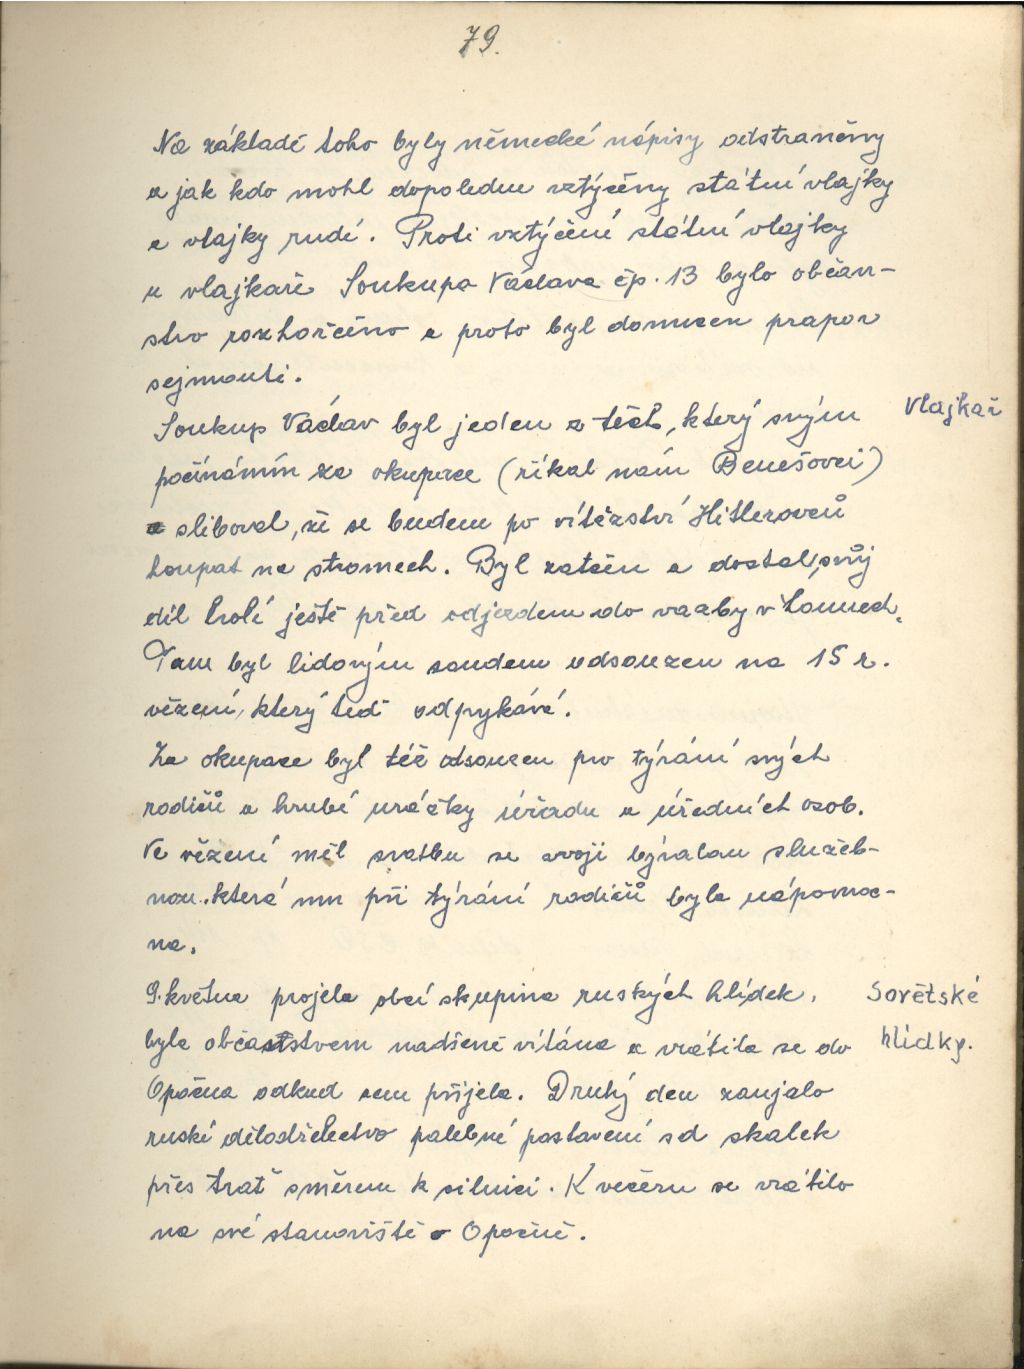 79.
Na základě toho byly německé nápisy odstraněny
a jak kdo mohl dopoledne vztýčeny státní vlajky
a vlajky rudé. Proti vztýčení státní vlajky
u vlajkaře Soukupa Václava čp. 13 bylo občan-
stvo rozhořčeno a proto byl donucen prapor
sejmouti.
Soukup Václav byl jeden z těch, který svým
Vlajkař
počínáním za okupace (říkal nám Benešovci)
sliboval, že se budem po vítězství Hitlerovců
houpat na stromech. Byl zatčen a dostal svůj
díl holí ještě před odjezdem do vazby v Lounech.
Tam byl lidovým soudem odsouzen na 15 r.
vězení, který teď odpykává.
Za okupace byl též odsouzen pro týrání svých
rodičů a hrubé urážky úřadu a úředních osob.
Ve vězení měl svatbu se svojí bývalou služeb-
nou, která mu při týrání rodičů byla nápomoc-
na.
9. května projela obcí skupina ruských hlídek,
Sovětské
byla občanstvem nadšeně vítána a vrátila se do
hlídky.
Opočna odkud sem přijela. Druhý den zaujalo
ruské dělostřelectvo palebné postavení od skalek
přes trať směrem k silnici. K večeru se vrátilo
na své stanoviště v Opočně.